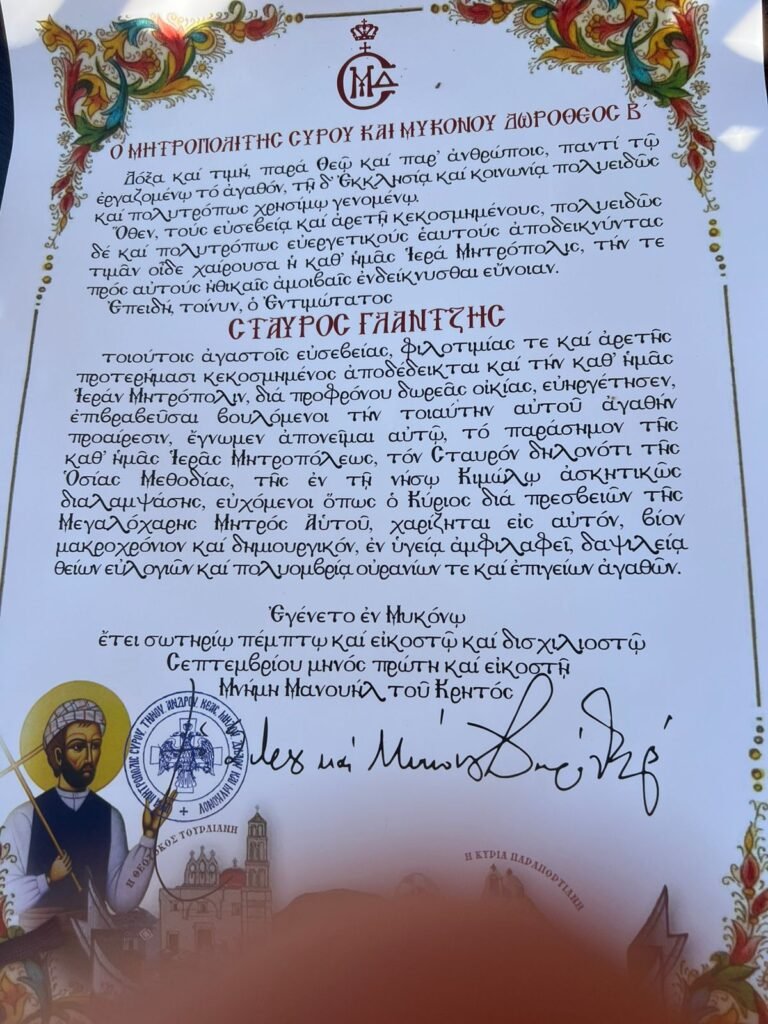 Ο ΜΗΤΡΟΠΟΛΙΤΗΣ ΣΥΡΟΥ ΚΑΙ ΜΥΚΟΝΟΥ ΔΩΡΟΘΕΟΣ Β
Δόξα καί τιμή, παρά Θεῷ καί παρ' ἀνθρώποις, παντί τῷ
ἐργαζομένῳ τό ἀγαθόν, τῇ δ' Ἐκκλησίᾳ καί κοινωνίᾳ πολυειδῶς
καί πολυτρόπως χρησίμῳ γενομένῳ.
Ὅθεν, τούς εὐσεβείᾳ καί ἀρετῇ κεκοσμημένους, πολυειδῶς
δέ καί πολυτρόπως εὐεργετικούς ἑαυτούς ἀποδεικνύντας
τιμᾶν οἶδε χαίρουσα ἡ καθ' ἡμᾶς Ἱερά Μητρόπολις, τήν τε
πρός αὐτούς ἠθικαῖς ἀμοιβαῖς ἐνδείκνυσθαι εὔνοιαν.
Ἐπειδή, τοίνυν, ὁ Ἐντιμώτατος
ΣΤΑΥΡΟΣ ΓΛΑΝΤΖΗΣ
τοιούτοις ἀγαστοῖς εὐσεβείας, φιλοτιμίας τε καί ἀρετῆς
προτερήμασι κεκοσμημένος ἀποδέδεικται καί τήν καθ' ἡμᾶς
Ἱεράν Μητρόπολιν, διά προφρόνου δωρεᾶς οἰκίας, εὐηργέτησεν,
ἐπιβραβεῦσαι βουλόμενοι τήν τοιαύτην αὐτοῦ ἀγαθήν
προαίρεσιν, ἔγνωμεν ἀπονεῖμαι αὐτῷ, τό παράσημον τῆς
καθ' ἡμᾶς Ἱερᾶς Μητροπόλεως, τόν Σταυρόν δηλονότι τῆς
Ὁσίας Μεθοδίας, τῆς ἐν τῇ νήσῳ Κιμώλῳ ἀσκητικῶς
διαλαμψάσης, εὐχόμενοι ὅπως ὁ Κύριος διά πρεσβειῶν τῆς
Μεγαλόχαρης Μητρός Αὐτοῦ, χαρίζηται εἰς αὐτόν, βίον
μακροχρόνιον καί δημιουργικόν, ἐν ὑγείᾳ ἀμφιλαφεῖ, δαψιλείᾳ
θείων εὐλογιῶν καί πολυομβρίᾳ οὐρανίων τε καί ἐπιγείων ἀγαθῶν.
Ἐγένετο ἐν Μυκόνῳ
ἔτει σωτηρίῳ πέμπτῳ καί εἰκοστῷ καί δισχιλιοστῷ
Σεπτεμβρίου μηνός πρώτῃ καί εἰκοστῇ
Μνήμη Μανουήλ τοῦ Κρητός
Η ΘΕΟΤΟΚΟΣ ΤΟΥΡΛΙΑΝΗ
Η ΚΥΡΙΑ ΠΑΡΑΠΟΡΤΙΑΝΗ